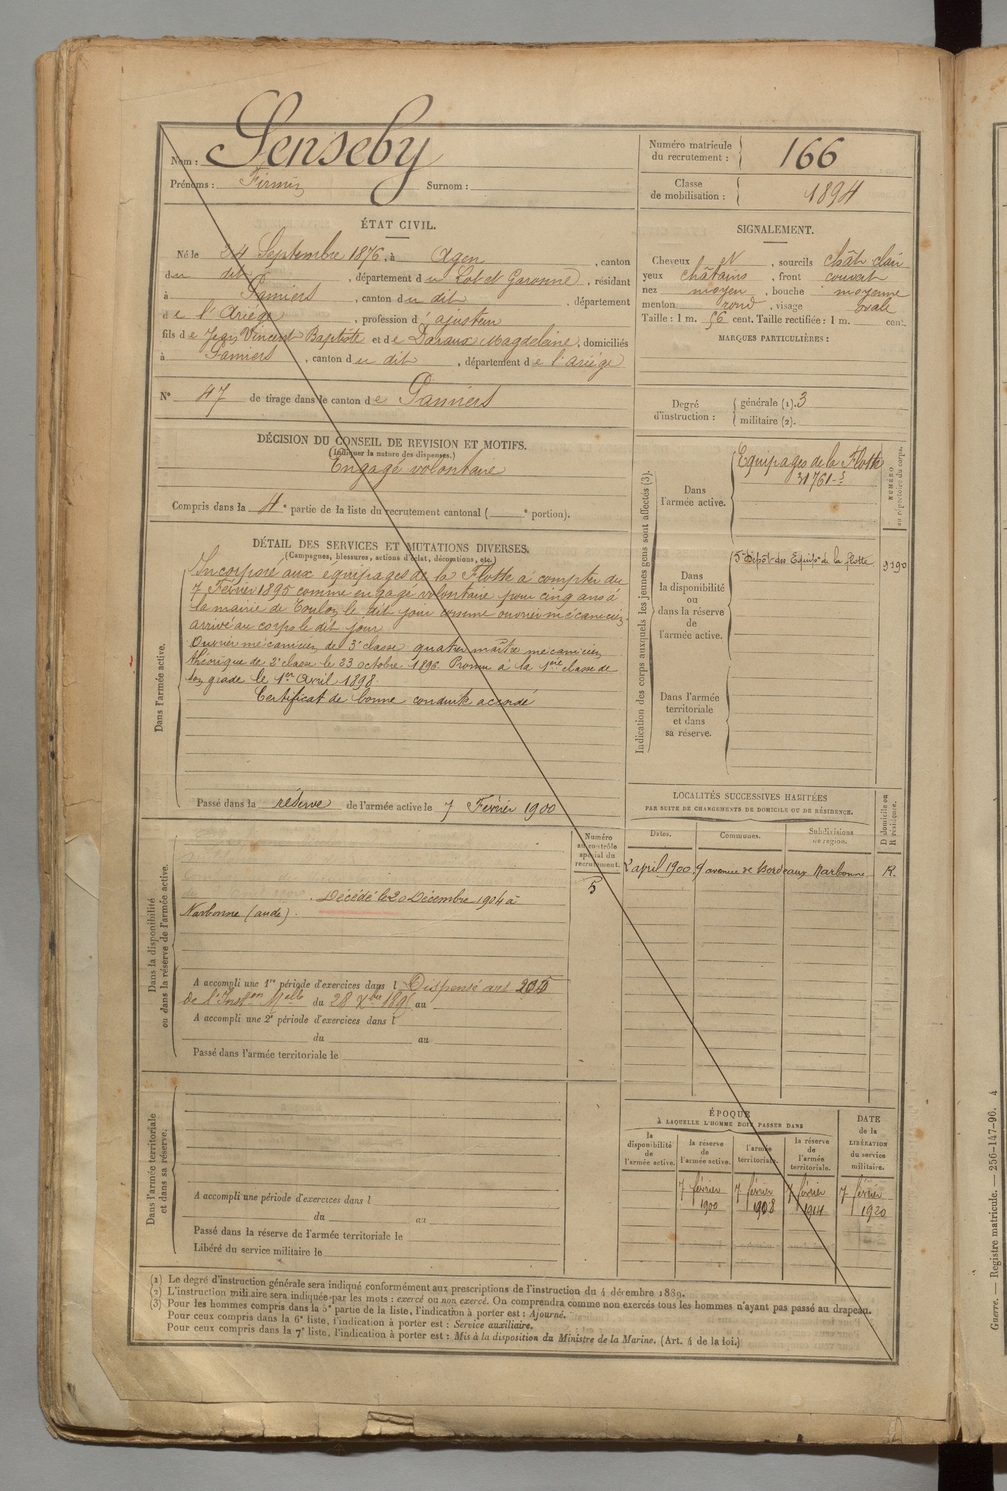 Nom : Senseby
Prénoms : Firmin Surnom :
Numéro matricule du recrutement : 166
Classe de mobilisation : 1894
ÉTAT CIVIL.
Né le 24 Septembre 1876, à Agen, canton
du dit, département du Lot et Garonne, résidant
à Pamiers, canton du dit, département
de l'Ariège, profession d'ajusteur
fils de Jean Vincent Baptiste et de Magdeleine, domiciliés
à Pamiers, canton du dit, département de l'ariège
N° 47 de tirage dans le canton de Pamiers
SIGNALEMENT.
Cheveux et, sourcils chât clair
yeux châtains, front couvert
nez moyen, bouche moyenne
menton rond, visage ovale
Taille : 1 m. 56 cent. Taille rectifiée : 1 m. cent.
MARQUES PARTICULIÈRES :
Degré d'instruction : générale (1). 3
militaire (2).
DÉCISION DU CONSEIL DE REVISION ET MOTIFS.
(Indiquer la nature des dispenses.)
Engagé volontaire
Compris dans la 4e partie de la liste du recrutement cantonal ( e portion).
DÉTAIL DES SERVICES ET MUTATIONS DIVERSES.
(Campagnes, blessures, actions d'éclat, décorations, etc.)
Dans l'armée active.
Incorporé aux équipages de la Flotte à compter du
7 Février 1895 comme engagé volontaire pour cinq ans à
la mairie de Toulon le dit jour comme ouvrier mécanicien
arrivé au corps le dit jour
Ouvrier mécanicien de 3e classe quartier maître mécanicien
théorique de 2e classe le 23 octobre 1896 Promu à la 1ère classe de
son grade le 1er Avril 1898
Certificat de bonne conduite accordé
Passé dans la réserve de l'armée active le 7 Février 1900
Indication des corps auxquels les jeunes gens sont affectés (3).
NUMÉRO au répertoire du corps.
Dans l'armée active.
Equipages de la Flotte
31761-5
Dans la disponibilité ou dans la réserve de l'armée active.
5e Dépôt des Equips de la flotte
9190
Dans l'armée territoriale et dans sa réserve.
LOCALITÉS SUCCESSIVES HABITÉES
PAR SUITE DE CHANGEMENTS DE DOMICILE OU DE RÉSIDENCE.
D domicile ou R résidence.
Dates. Communes. Subdivisions de région.
2 april 1900. 9 avenue de Bordeaux Narbonne R.
Dans la disponibilité ou dans la réserve de l'armée active.
Numéro au contrôle spécial du recrutement.
5
Décédé le 20 Décembre 1904 à
Narbonne (aude).
A accompli une 1re période d'exercices dans l Dispensé art 205
de l'Inson Melle du 28 Xbre 189 au
A accompli une 2e période d'exercices dans l
du au
Passé dans l'armée territoriale le
Dans l'armée territoriale et dans sa réserve.
A accompli une période d'exercices dans l
du au
Passé dans la réserve de l'armée territoriale le
Libéré du service militaire le
ÉPOQUE
À LAQUELLE L'HOMME DOIT PASSER DANS
la disponibilité de l'armée active.
la réserve de l'armée active.
l'armée territoriale.
la réserve de l'armée territoriale.
DATE de la LIBÉRATION du service militaire.
7 février 1900
7 février 1908
7 février 1914
7 février 1920
(1) Le degré d'instruction générale sera indiqué conformément aux prescriptions de l'instruction du 4 décembre 1889.
(2) L'instruction militaire sera indiquée par les mots : exercé ou non exercé. On comprendra comme non exercés tous les hommes n'ayant pas passé au drapeau.
(3) Pour les hommes compris dans la 5e partie de la liste, l'indication à porter est : Ajourné.
Pour ceux compris dans la 6e liste, l'indication à porter est : Service auxiliaire.
Pour ceux compris dans la 7e liste, l'indication à porter est : Mis à la disposition du Ministre de la Marine. (Art. 4 de la loi.)
Guerre. — Registre matricule. — 256-147-96. 4